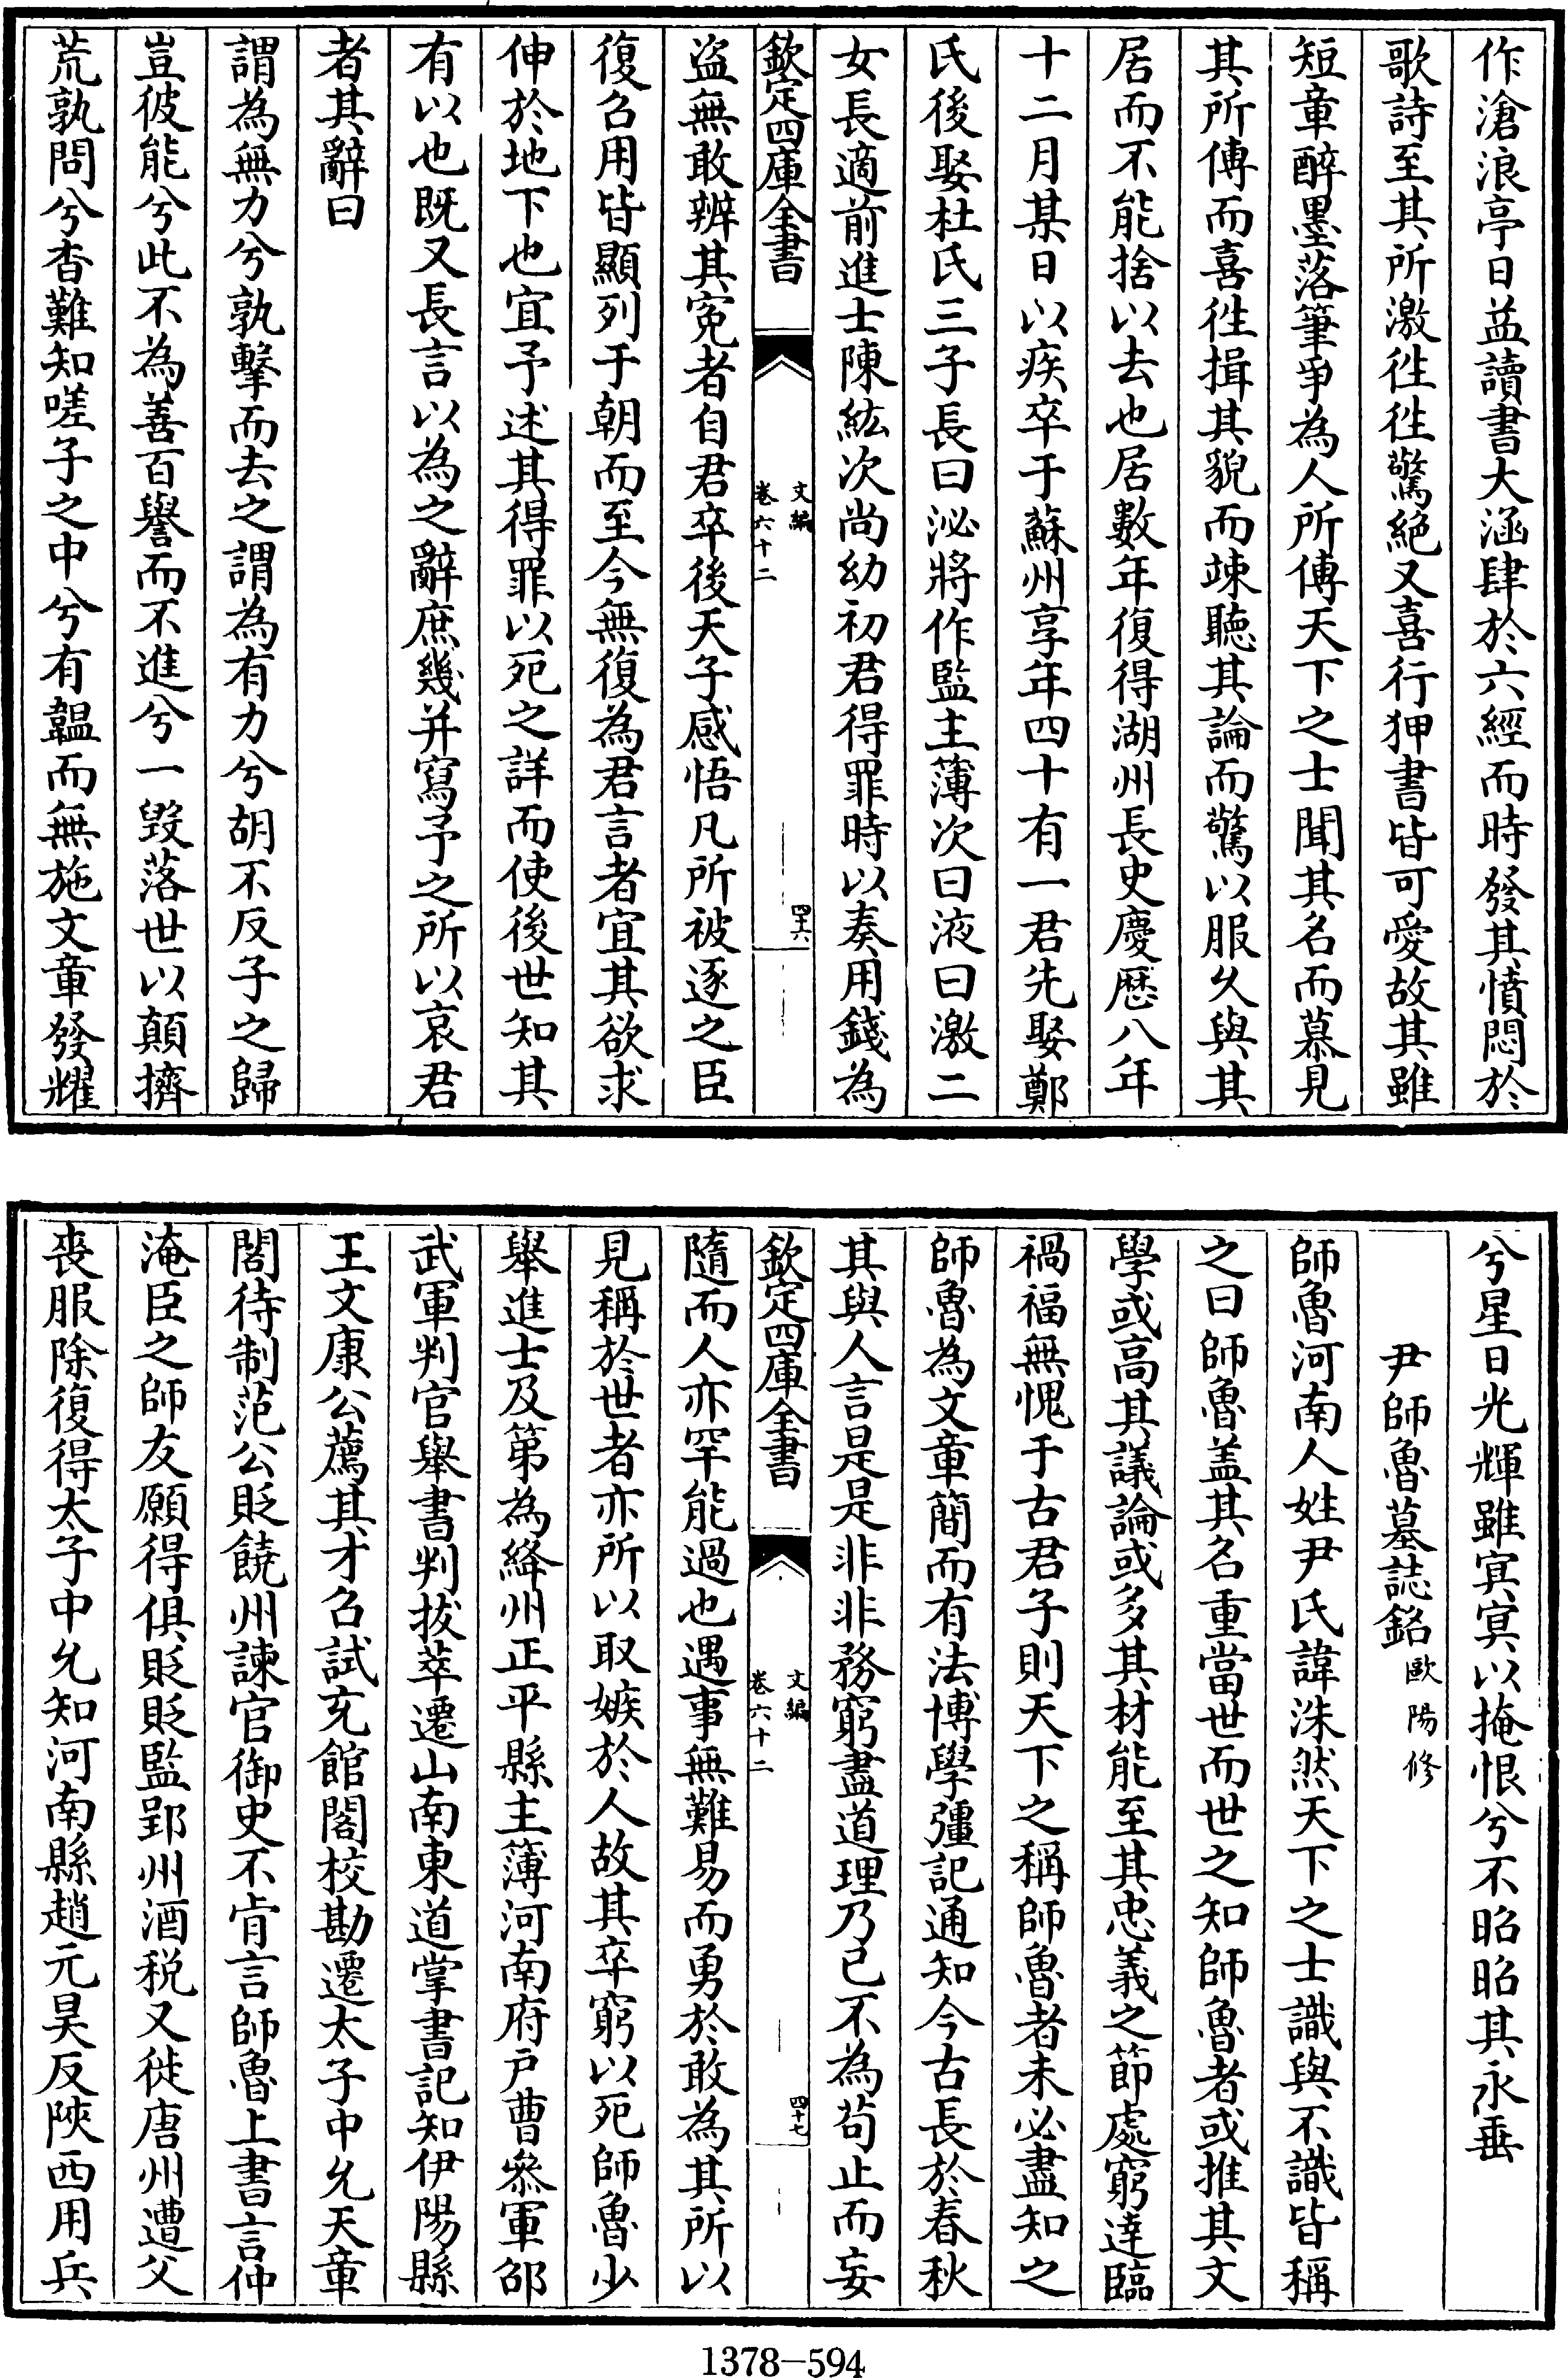 作滄浪亭日益讀書大涵肆於六經而時發其憤悶於
歌詩至其所激徃徃驚絶又喜行狎書皆可愛故其雖
短章醉墨落筆爭為人所傳天下之士聞其名而慕見
其所傳而喜徃揖其貌而竦聽其論而驚以服久與其
居而不能捨以去也居數年復得湖州長史慶歴八年
十二月某日以疾卒于蘇州享年四十有一君先娶鄭
氏後娶杜氏三子長曰泌將作監主簿次曰液曰激二
女長適前進士陳紘次尚幼初君得罪時以奏用錢為
欽定四庫全書
文編
卷六十二
四十六
盜無敢辨其寃者自君卒後天子感悟凡所被逐之臣
復召用皆顯列于朝而至今無復為君言者宜其欲求
伸於地下也宜予述其得罪以死之詳而使後世知其
有以也既又長言以為之辭庶幾并寫予之所以哀君
者其辭曰
謂為無力兮孰擊而去之謂為有力兮胡不反子之歸
豈彼能兮此不為善百譽而不進兮一毀落世以顛擠
荒孰問兮杳難知嗟子之中兮有韞而無施文章發耀
兮星日光輝雖㝠㝠以掩恨兮不昭昭其永垂
尹師魯墓誌銘歐陽修
師魯河南人姓尹氏諱洙然天下之士識與不識皆稱
之曰師魯盖其名重當世而世之知師魯者或推其文
學或高其議論或多其材能至其忠義之節處窮達臨
禍福無愧于古君子則天下之稱師魯者未必盡知之
師魯為文章簡而有法博學彊記通知今古長於春秋
其與人言是是非非務窮盡道理乃已不為苟止而妄
欽定四庫全書
文編
卷六十二
四十七
隨而人亦罕能過也遇事無難易而勇於敢為其所以
見稱於世者亦所以取嫉於人故其卒窮以死師魯少
舉進士及第為絳州正平縣主簿河南府户曹叅軍邵
武軍判官舉書判拔萃遷山南東道掌書記知伊陽縣
王文康公薦其才召試充館閣校勘遷太子中允天章
閣待制范公貶饒州諫官御史不肯言師魯上書言仲
淹臣之師友願得俱貶貶監郢州酒税又徙唐州遭父
喪服除復得太子中允知河南縣趙元昊反陜西用兵
1378-594